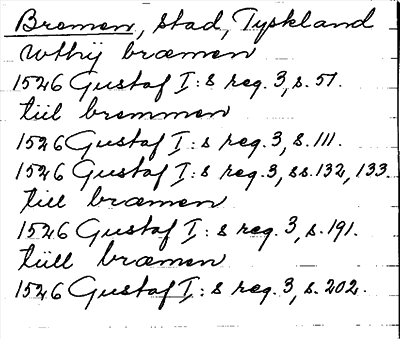 Bremen, stad, Tyskland
wthij bræmen
1526 Gustaf I:s reg. 3, s. 57.
tiil bremmen
1526 Gustaf I:s reg. 3, s. 111.
1526 Gustaf I:s reg. 3, ss. 132, 133.
till bræmen
1526 Gustaf I:s reg. 3, s. 191.
tiill bræmen
1526 Gustaf I:s reg. 3, s. 202.